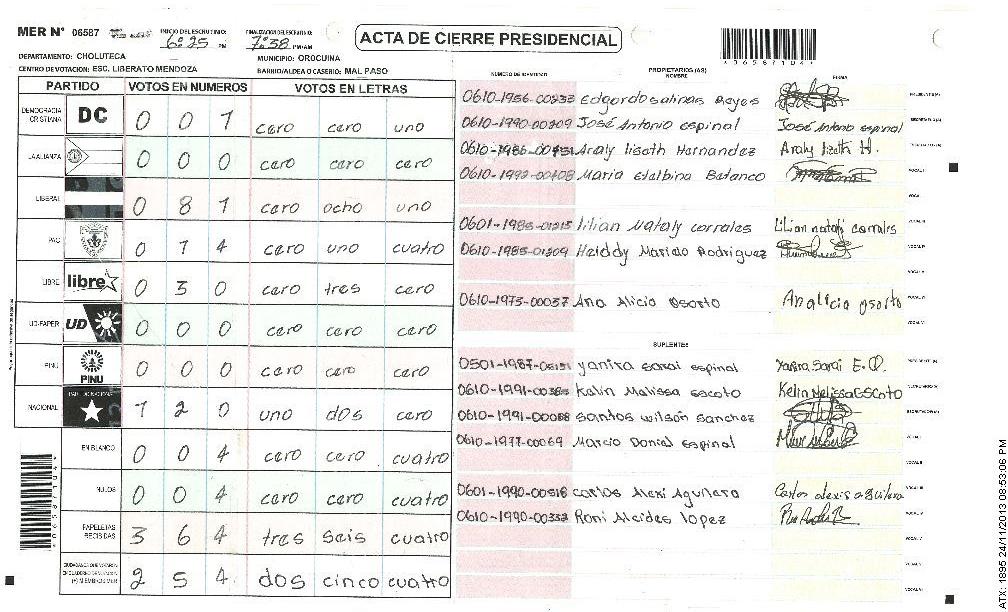 MER N° 06587 INICIO DEL ESCRUTINIO: 6:25 PM FINALIZACION DEL ESCRUTINIO: 7:38 PM/AM
ACTA DE CIERRE PRESIDENCIAL
*06587104*
DEPARTAMENTO: CHOLUTECA MUNICIPIO: OROCUINA
CENTRO DE VOTACION: ESC. LIBERATO MENDOZA BARRIO/ALDEA O CASERIO: MAL PASO
PARTIDO VOTOS EN NUMEROS VOTOS EN LETRAS
DEMOCRACIA CRISTIANA DC 0 0 1 cero cero uno
LA ALIANZA 0 0 0 cero cero cero
LIBERAL 0 8 1 cero ocho uno
PAC 0 1 4 cero uno cuatro
LIBRE libre 0 3 0 cero tres cero
UD-FAPER UD 0 0 0 cero cero cero
PINU PINU 0 0 0 cero cero cero
NACIONAL 1 2 0 uno dos cero
EN BLANCO 0 0 4 cero cero cuatro
NULOS 0 0 4 cero cero cuatro
PAPELETAS RECIBIDAS 3 6 4 tres seis cuatro
2 5 4 dos cinco cuatro
NUMERO DE IDENTIDAD PROPIETARIOS (AS) NOMBRE FIRMA
0610-1956-00233 Edgardo salinas Reyes PRESIDENTE (A)
0610-1990-00209 José Antonio espinal José Antonio espinal SECRETARIO (A)
Araly lisath Hernandez Araly lizeth H.
Maria Batanco VOCAL I
VOCAL II
0601-1985-01215 lilian Nataly corrales Lilian nataly corrales VOCAL III
0610-1985-01209 Heiddy Rodriguez VOCAL IV
VOCAL V
0610-1973-00037 Ana Alicia Osorto Analicia osorto VOCAL VI
VOCAL VII
SUPLENTES
yanira sarai espinal Yanira Sarai E.
Kelin Melissa escoto Kelin Melissa Escoto
0610-1991-00088 santos wilson sanchez
0610-1977-00069 Marcio espinal VOCAL I
VOCAL II
0601-1990-00518 carlos Alexi Aguilera Carlos alexis aguilera VOCAL III
0610-1990-00332 Roni Alcides lopez VOCAL IV
VOCAL V
VOCAL VI
VOCAL VII
ATX: 1895 24/11/2013 08:53:06 PM